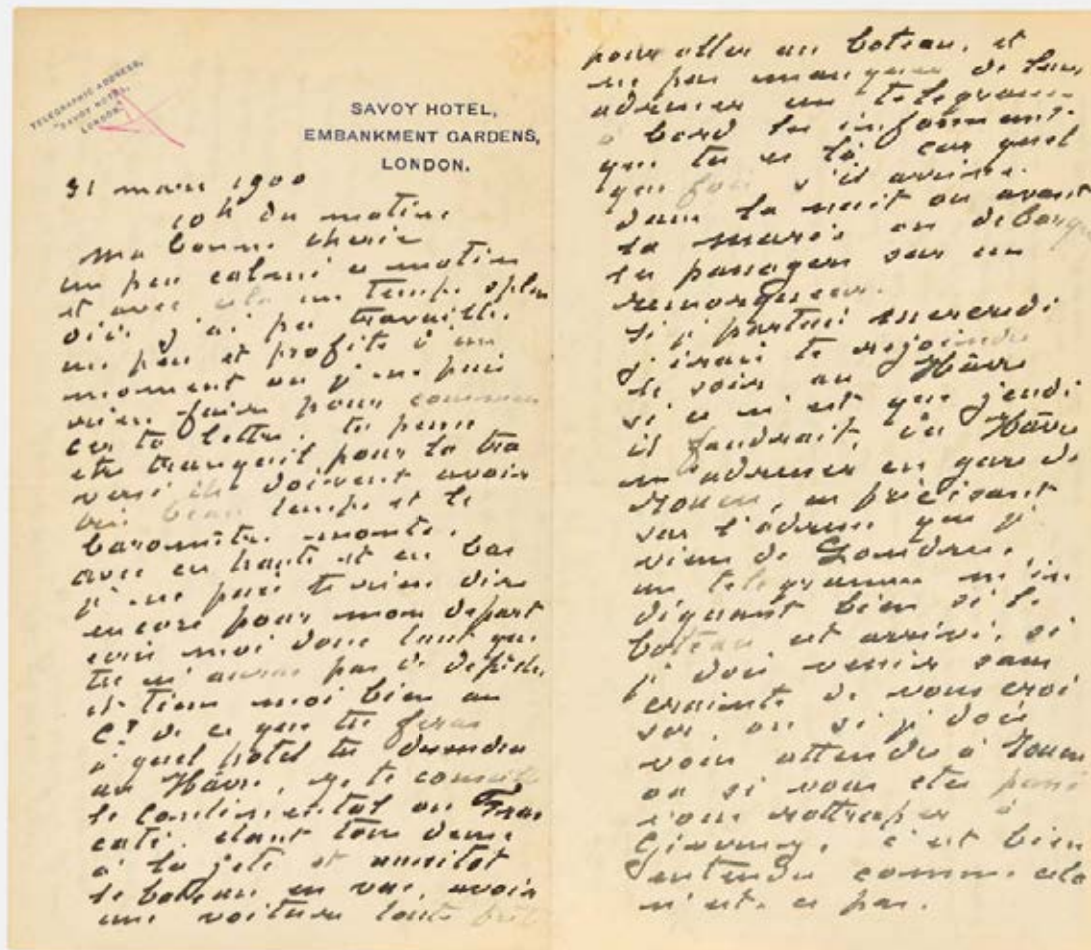 TELEGRAPHIC ADDRESS,
"SAVOY HOTEL,
LONDON."
SAVOY HOTEL,
EMBANKMENT GARDENS,
LONDON.
31 mars 1900
10h du matin
Ma bonne cherie
un peu calmé ce matin
et avec cela un temps splen
dide j'ai pu travailler
un peu et profite d'un
moment ou je ne puis
rien faire pour commen
cer ta lettre. tu peux
etre tranquil pour la tra
versé ils doivent avoir
beau temps et le
barometre monte.
avec en haut et en bas
je ne puis te rien dire
encore pour mon depart
ecris moi donc tant que
tu n'auras pas de depêche
et tiens moi bien au
ct de ce que tu feras
à quel hotel tu descendra
au Hâvre, je te conseille
le continental ou Fras
cati. etant tous deux
à la jeté et aussitot
le bateau en vue, avoir
une voiture toute prete
pour aller au bateau. et
ne pas manquer de leur
adresser un telegramme
à bord les informant
que tu es là car quel
que fois s'il arrive
dans la nuit ou avant
la marée on debarque
les passagers sur un
remorqueur.
si je partais mercredi
j'irais te rejoindre
le soir au Hâvre
si ce n'est que jeudi
il faudrait, du Hâvre
m'adresser en gare de
Rouen, en précisant
sur l'adresse que je
viens de Londres.
un telegramme m'in
diquant bien si le
bateau est arrivé, si
je dois venir sans
crainte de vous croi
ser, ou si je dois
vous attendre à Rouen
ou si vous etes
vous rattraper à
Giverny. c'est bien
entendu comme cela
n'est-ce pas.